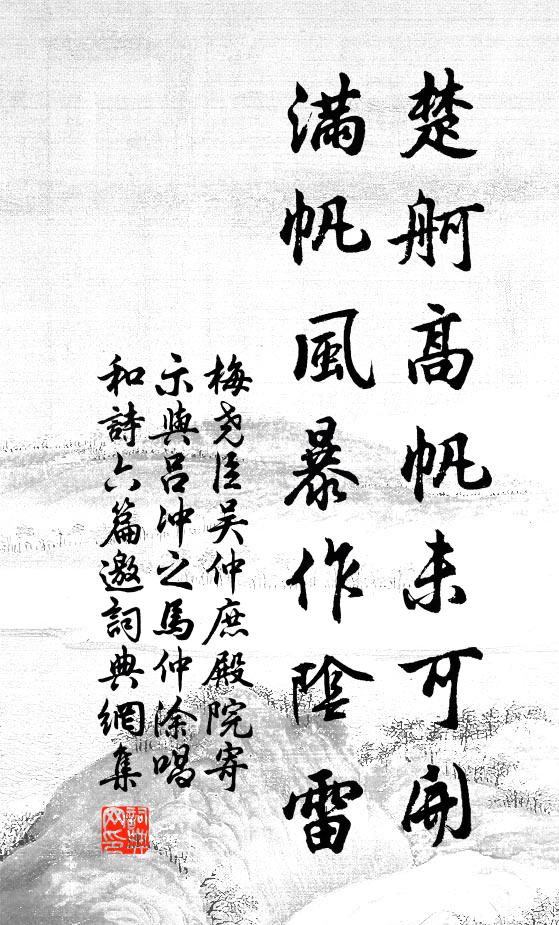 楚舸高帆未可開
滿帆風暴作陰雷
梅堯臣吴仲庶殿院寄
示與呂冲之馬仲涂唱
和詩六篇邀詞典網集
詞典網印